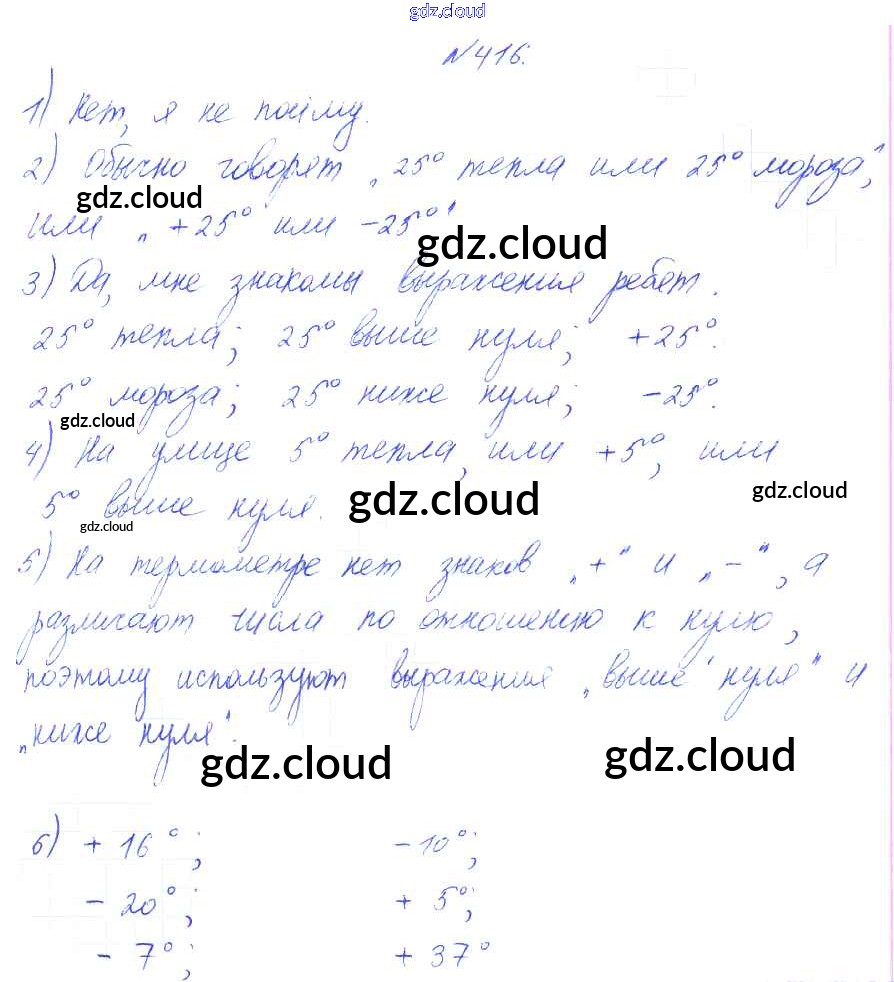 gdz.cloud
№416.
1) Нет, я не пойму.
2) Обычно говорят „25° тепла или 25° мороза",
gdz.cloud
или „+25° или -25°"
gdz.cloud
3) Да, мне знакомы выражения ребят.
25° тепла; 25° выше нуля; +25°.
25° мороза; 25° ниже нуля; -25°.
gdz.cloud
4) На улице 5° тепла, или +5°, или
5° выше нуля.
gdz.cloud
gdz.cloud
gdz.cloud
5) На термометре нет знаков „+" и „-", а
различают числа по отношению к нулю,
поэтому используют выражения „выше нуля" и
„ниже нуля".
gdz.cloud
gdz.cloud
6) +16°; -10°;
-20°; +5°;
-7°; +37°